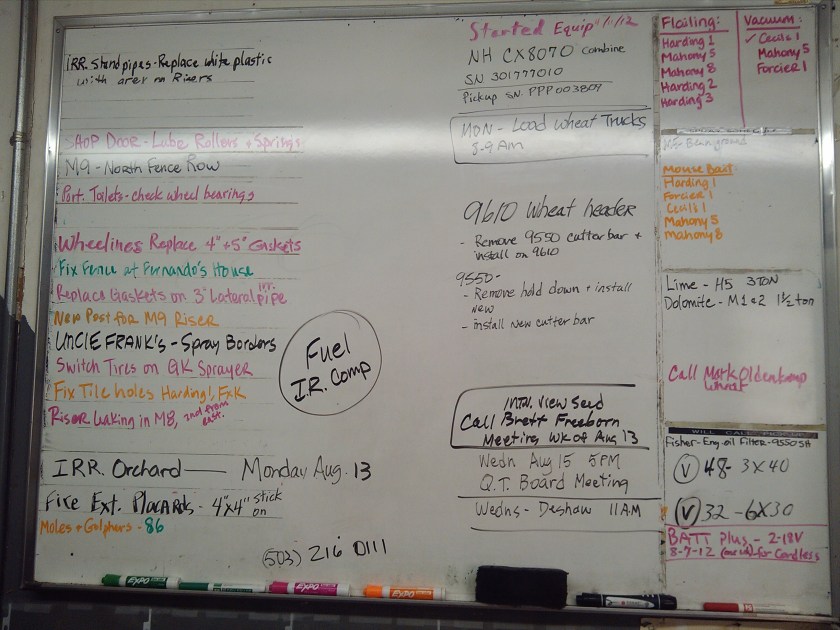 IRR. Standpipes - Replace white plastic
with arer on Risers
SHOP DOOR - Lube Rollers + Springs
M9 - North Fence Row
Port. Toilets - check wheel bearings
Wheelines Replace 4" + 5" Gaskets
Fix Fence at Fernando's House
Replace Gaskets on 3" Lateral irr. pipe
New Post for M9 Riser
UNCLE FRANK'S - Spray Borders
Switch Tires on GK Sprayer
Fix Tile holes Harding 1, FxK
Riser Leaking in M8, 2nd from
east.
Fuel
I.R. Comp
IRR. Orchard — Monday Aug. 13
Fire Ext. Placards - 4"x4" stick
on
Moles + Gulphers - 86
(503) 216 0111
Started Equip 1/12
NH CX8070 Combine
SN 301777010
Pickup SN. PPP003809
MON - Load Wheat Trucks
8-9 Am
9610 Wheat header
- Remove 9550 cutter bar +
install on 9610
9550 -
- Remove hold down + install
new
- install New cutter bar
INTN. View Seed
Call Brett Freeborn
Meeting wk of Aug 13
Wedn Aug 15 5PM
Q.T. Board Meeting
Wedns - Deshaw 11AM
Flailing:
Harding 1
Mahony 5
Mahony 8
Harding 2
Harding 3
Vacuum:
✓ Ceulk 1
Mahony 5
Forcier 1
Mouse Bait
Harding 1
Forcier 1
Ceulk 1
Mahony 5
Mahony 8
Lime - H5 3 TON
Dolomite - M1+2 1½ ton
Call Mark Oldenkamp
Wheat
WILL CALL
Fisher - Eng. oil Filter - 9550 SH
(V) 48 - 3x40
(V) 32 - 6x30
BATT Plus - 2-18V
8-7-12 for Cordless
EXPO
EXPO
EXPO